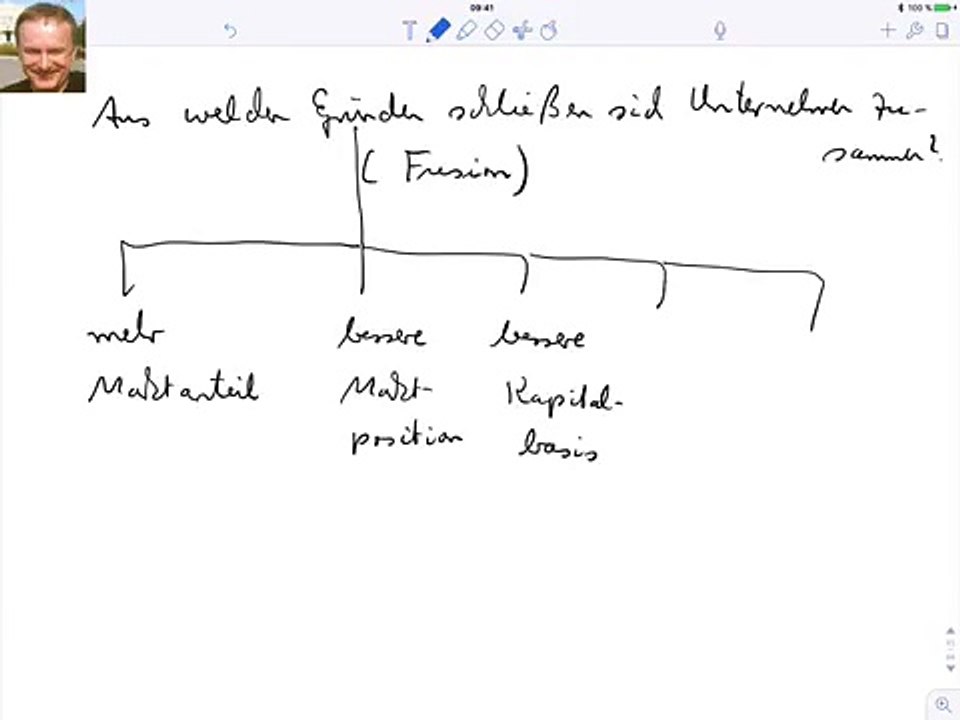 09:41
100 %
T
Aus welchen Gründen schließen sich Unternehmen zu-
sammen?
( Fusion )
mehr
Marktanteil
bessere
Markt-
position
bessere
Kapital-
basis